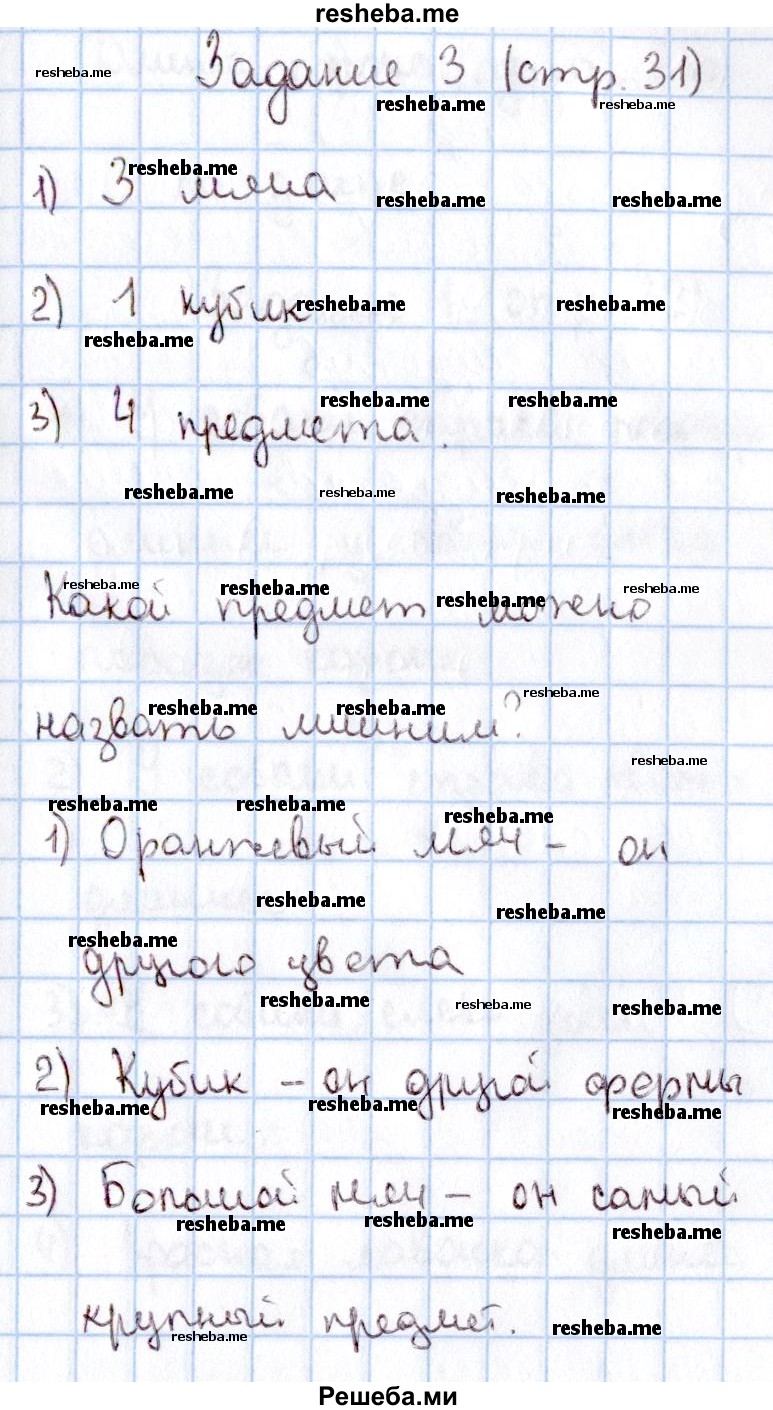 resheba.me
resheba.me Задание 3 (стр. 31)
resheba.me resheba.me
resheba.me
1) 3 мяча
resheba.me resheba.me
2) 1 кубик resheba.me resheba.me
resheba.me
resheba.me resheba.me
3) 4 предмета.
resheba.me resheba.me resheba.me
resheba.me resheba.me resheba.me resheba.me
Какой предмет можно
resheba.me
resheba.me resheba.me
назвать лишним?
resheba.me
resheba.me resheba.me resheba.me
1) Оранжевый мяч – он
resheba.me resheba.me
resheba.me
другого цвета
resheba.me resheba.me resheba.me
2) Кубик – он другой формы
resheba.me resheba.me resheba.me
3) Большой мяч – он самый
resheba.me resheba.me resheba.me
крупный предмет.
resheba.me resheba.me
Решеба.ми